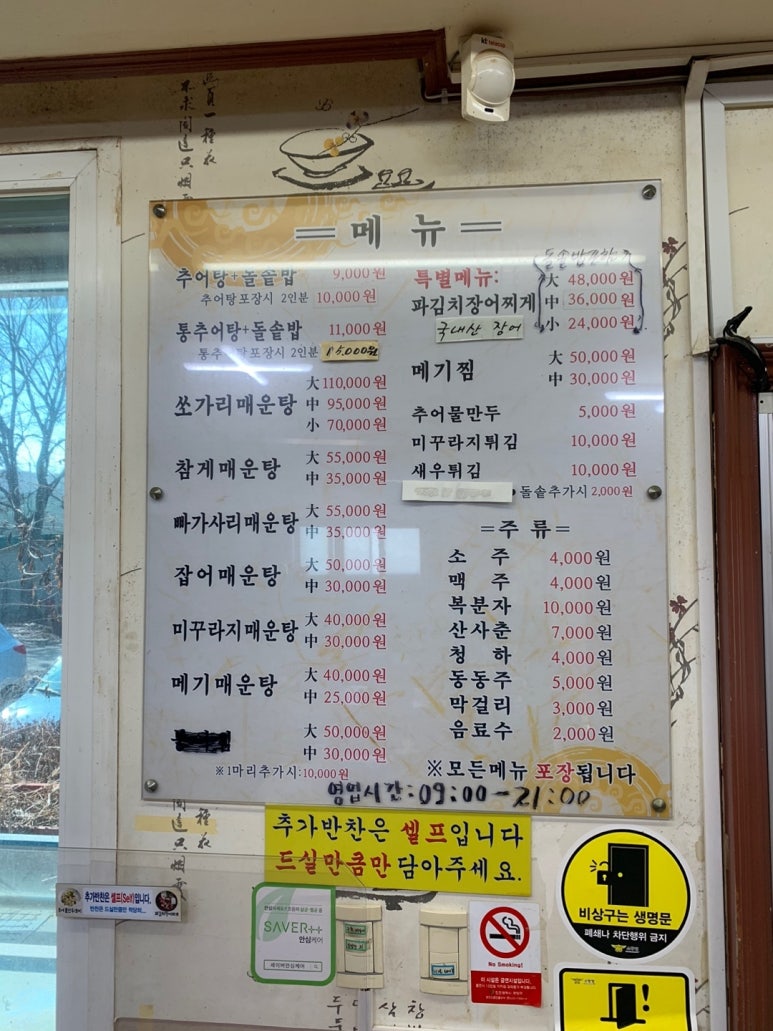 kt telecop
=메 뉴=
추어탕+돌솥밥 9,000원
추어탕포장시 2인분 10,000원
통추어탕+돌솥밥 11,000원
15,000원
쏘가리매운탕 大 110,000원
中 95,000원
小 70,000원
참게매운탕 大 55,000원
中 35,000원
빠가사리매운탕 大 55,000원
中 35,000원
잡어매운탕 大 50,000원
中 30,000원
미꾸라지매운탕 大 40,000원
中 30,000원
메기매운탕 大 40,000원
中 25,000원
大 50,000원
中 30,000원
※1마리추가시:10,000원
특별메뉴:
돌솥밥포함
파김치장어찌게 大 48,000원
中 36,000원
小 24,000원
국내산 장어
메기찜 大 50,000원
中 30,000원
추어물만두 5,000원
미꾸라지튀김 10,000원
새우튀김 10,000원
돌솥추가시 2,000원
=주 류=
소 주 4,000원
맥 주 4,000원
복분자 10,000원
산사춘 7,000원
청 하 4,000원
동동주 5,000원
막걸리 3,000원
음료수 2,000원
※모든메뉴 포장됩니다
영업시간:09:00-21:00
추가반찬은 셀프입니다
드실만큼만 담아주세요.
추가반찬은 셀프(Self)입니다.
SAVER++
안심케어
세이버안심케어
No Smoking!
이 시설은 금연시설입니다.
비상구는 생명문
폐쇄나 차단행위 금지